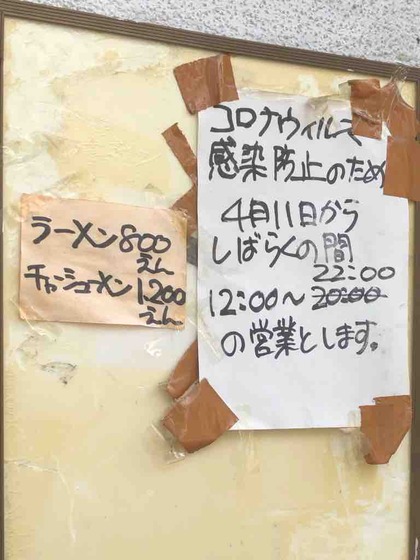 ラーメン800
えん
チャーシューメン1200
えん
コロナウィルス
感染防止のため
4月11日から
しばらくの間
22:00
12:00～20:00
の営業とします。